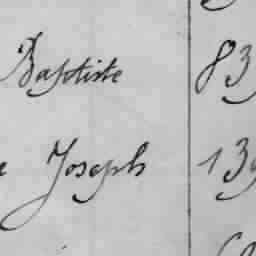 Baptiste 83
Joseph 139